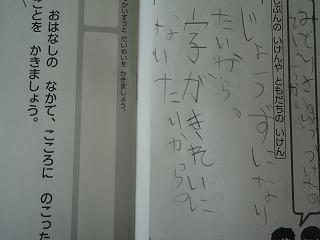 じぶんの いけんや ともだちの いけん
じょうずになり
たいから。
字がきれいに
なりたいからの
かいすうと だいめいを かきましょう。
おはなしの なかで、こころに のこった
ことを かきましょう。